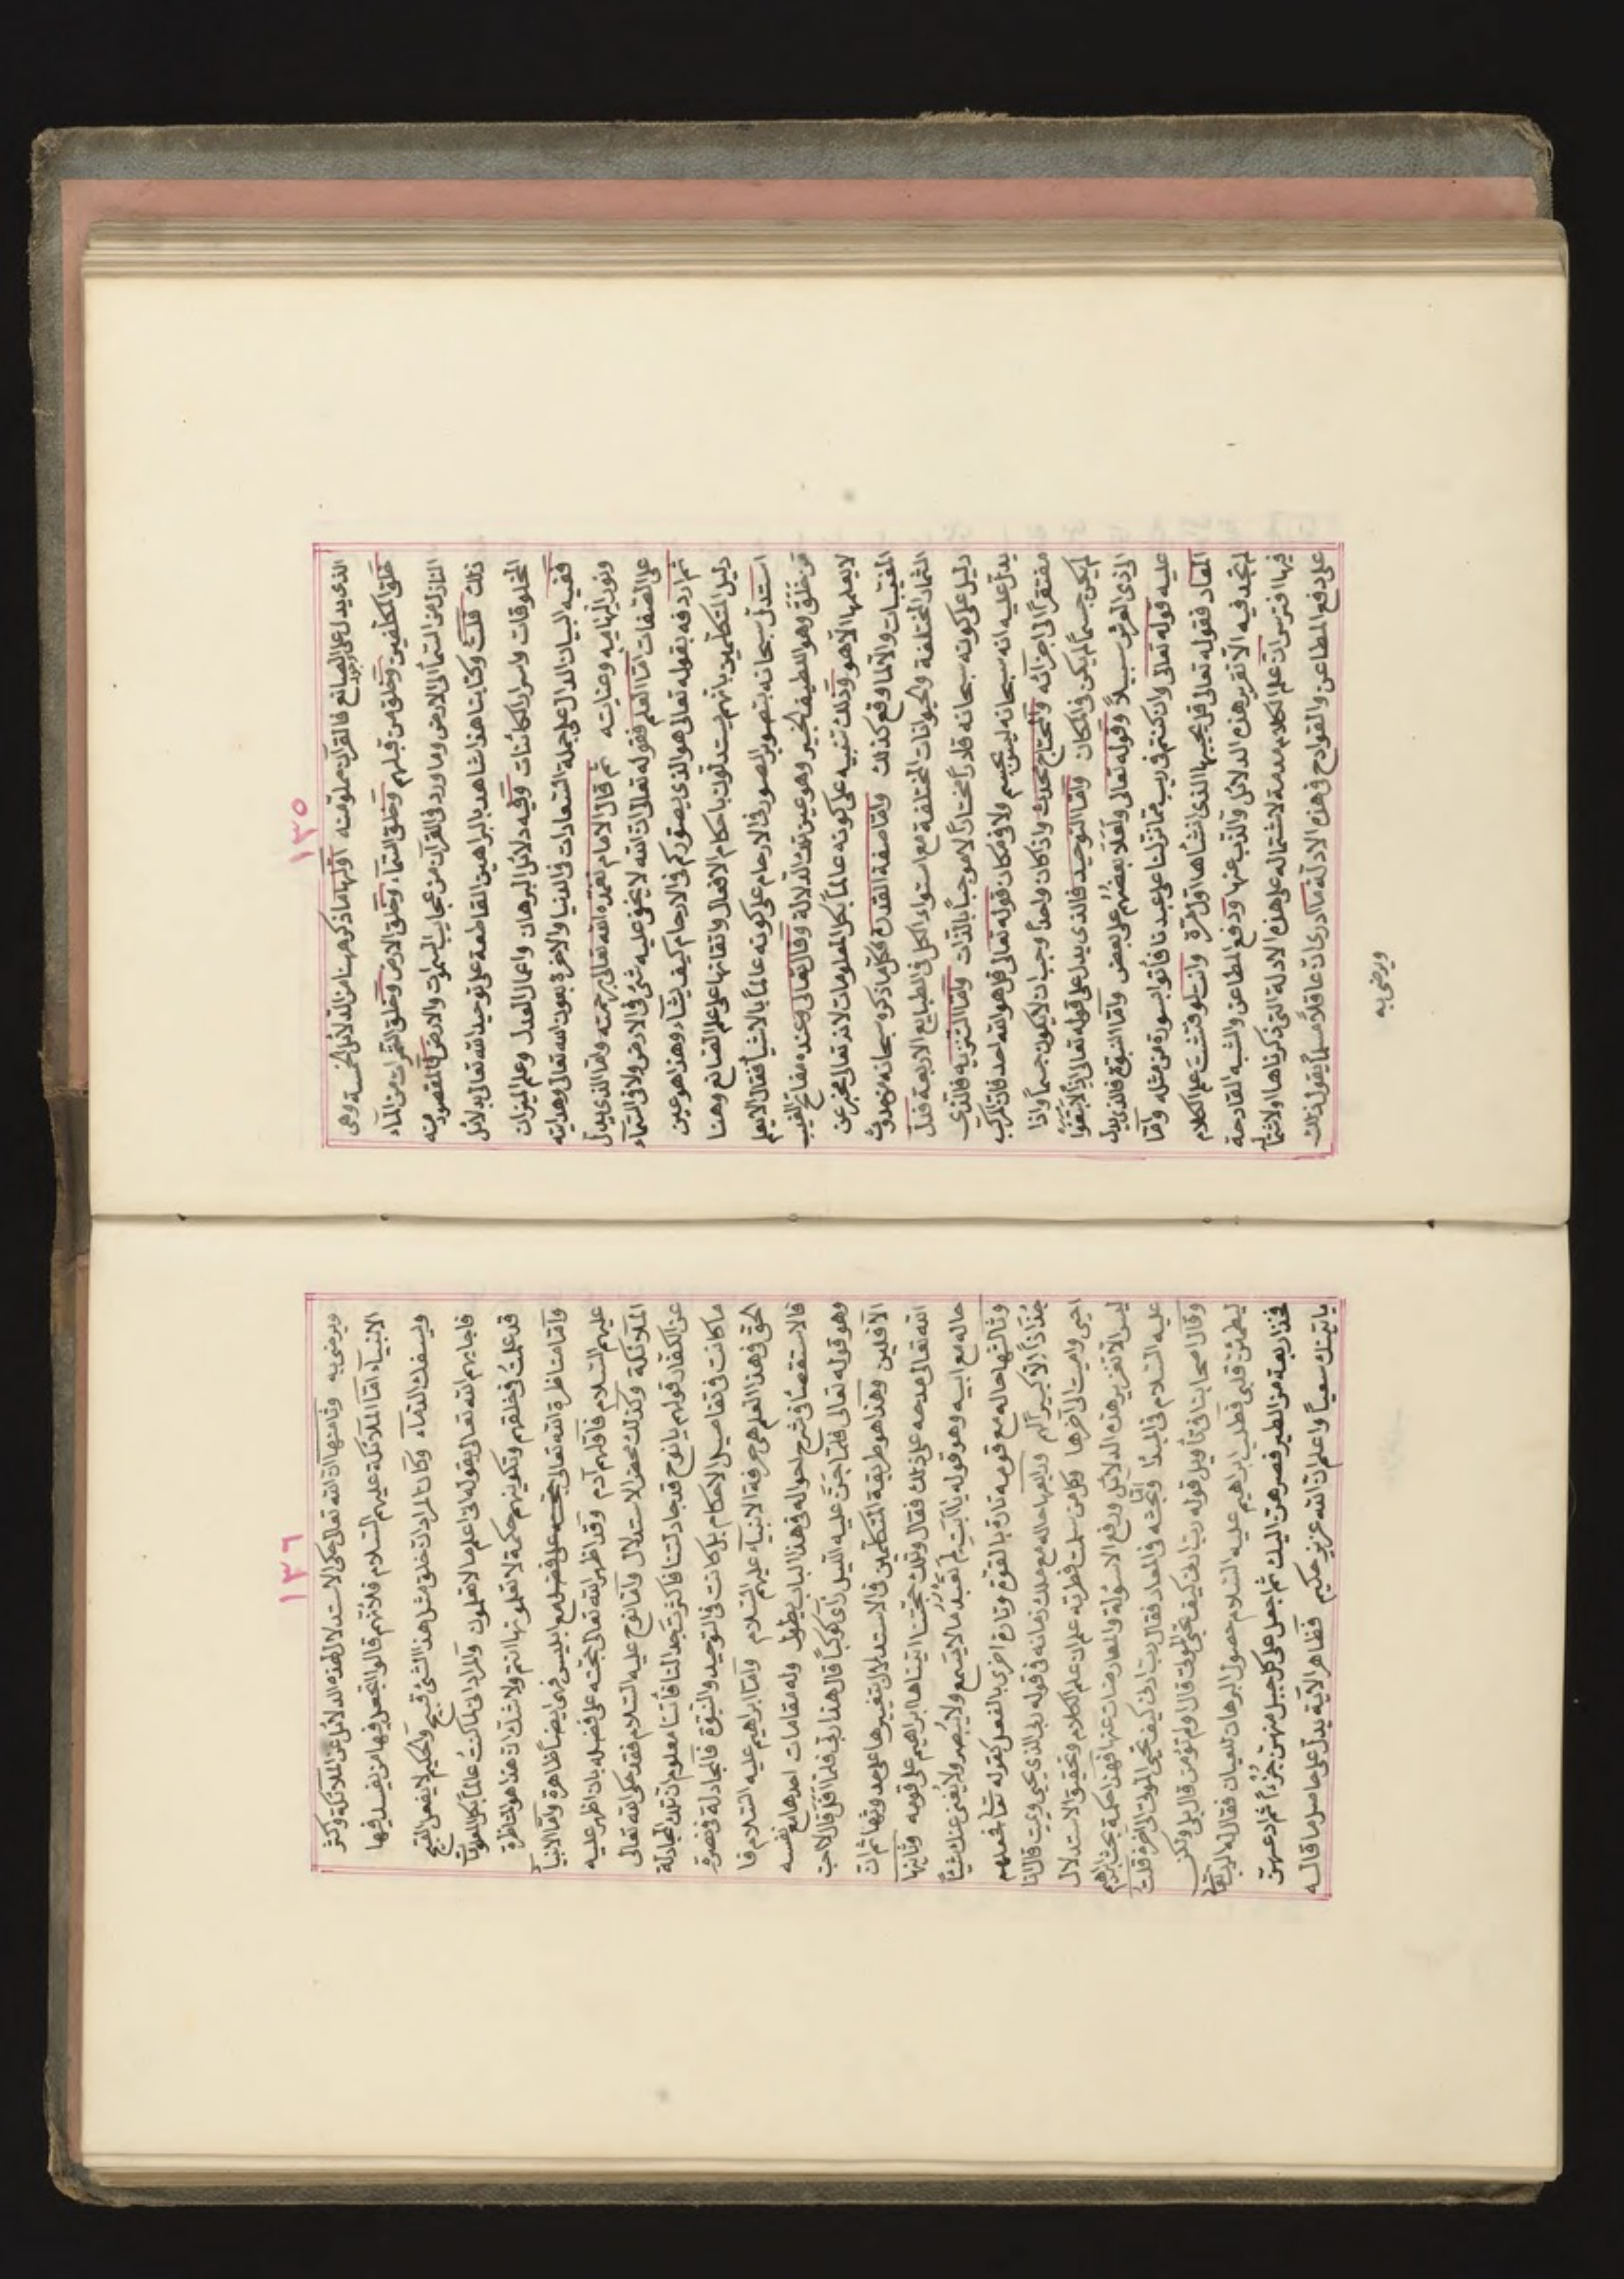 ١٣٥
الذى يدل على وجود الصانع فالقرآن مملو منه اولها ما ذكر ههنا من الدلائل الخمسة وهى
خلق المكلفين وخلق من قبلهم وخلق السماء وخلق الارض وخلق الثمرات من الماء
النازل من السماء الى الارض وما ورد فى القرآن من عجايب السموات والارض فالمقصود منه
ذلك قلت وكتابنا هذا شاهد بالبراهين القاطعة على توحيد الله تعالى بدلائل
المخلوقات واسرار الكائنات وفيه دلائل البرهان واعمال العدل وعلم الميزان
ففيه البيان الدال على جملة السعادات فى الدنيا والاخرة بعون الله تعالى وهدايته
ونوره الهنا به وعنايته ثم قال الامام تغمده الله تعالى برحمته واما الذى يدل
على الصفات اما العلم فقوله تعالى ان الله لا يخفى عليه شئ فى الارض ولا فى السماء
ثم اردفه بقوله تعالى هو الذى يصوركم فى الارحام كيف يشاء وهذا هو عين
دليل المتكلمين بانهم يستدلون باحكام الافعال واتقانها على علم الصانع وهنا
استدل سبحانه بتصوير الصور فى الارحام على كونه عالماً بالاشيا فقال الا يعلم
من خلق وهو اللطيف الخبير وهو عين تلك الدلالة وقال تعالى وعنده مفاتح الغيب
لا يعلمها الا هو وذلك تنبيه على كونه عالماً بكل المعلومات لانه تعالى مخبر عن
المغيبات والانما وقع كذلك واما صفة القدرة فكل ما ذكره سبحانه من حدوث
الثمار المختلفة والحيوانات المختلفة مع استواء الكل فى الطبايع الاربعة فدل
دليل على كونه سبحانه قادراً مختاراً لا موجباً بالذات واما التنزيه فالذى
يدل عليه انه سبحانه ليس بجسم ولا فى مكان قوله تعالى قل هو الله احد فان المركب
مفتقراً الى اجزائه والمحتاج محدث واذا كان واحداً وجب ان لا يكون جسماً واذا
لم يكن جسماً لم يكن فى المكان واما التوحيد فالذى يدل على قوله تعالى اذاً لابتغوا
الى ذى العرش سبيلاً وقوله تعالى ولعلا بعضهم على بعض واما النبوة فالذى يدل
عليه قوله تعالى وان كنتم فى ريب مما نزلنا على عبدنا فأتوا بسورة من مثله واما
المعاد فقوله تعالى قل يحييها الذى انشأها اول مرة وانت لو فتشت علم الكلام
لم تجد فيه الا تقرير هذه الدلائل والذب عنها ودفع المطاعن والشبه القادحة
فيها افترى ان علم الكلام مذمة لاشتماله على هذه الادلة التى ذكرناها او لاشتماله
على دفع المطاعن والقوادح فى هذه الادلة ما ادرى ان عاقلاً مسلماً يقول ذلك
ويرضى به
١٣٦
ويرضى به وثامنها ان الله تعالى حكى الاستدلال لهذه الدلائل عن الملائكة وكثر
الانبياء اما الملائكة عليهم السلام فلانهم قالوا اتجعل فيها من يفسد فيها
ويسفك الدماء وكان المراد ان خلق مثل هذا الشئ قبيح والحكيم لا يفعل القبيح
فاجابهم الله تعالى بقوله انى اعلم ما لا تعلمون والمراد انى لما كنت عالماً بكل المعلومات
قد علمت فى خلقهم وتكوينهم حكمة لا تعلمونها انتم ولا شك ان هذا هو المناظرة
واما مناظرة الله تعالى مع ابليس فهى ايضاً ظاهرة واما الانبيا
عليهم السلام فاولهم آدم وقد اظهر الله تعالى حجته على فضله بان اظهر عليه
الملائكة وكذلك محض الاستدلال واما نوح عليه السلام فقد حكى الله تعالى
عن الكفار قولهم يا نوح قد جادلتنا فاكثرت جدالنا فأتنا معلوم ان تلك المجادلة
ما كانت فى تفاصيل الاحكام بل كانت فى التوحيد والنبوة فالمجادلة فى نصرة
الحق فى هذا العلم هى حرفة الانبياء عليهم السلام واما ابراهيم عليه السلام فا
فالاستقصاء فى شرح احواله فى هذا الباب يطول وله مقامات احدها مع نفسه
وهو قوله تعالى فلما جن عليه الليل رآى كوكباً قال هذا ربى فلما افل قال لا احب
الآفلين وهذا هو طريقة المتكلمين فى الاستدلال بتغيرها على حدوثها ثم ان
الله تعالى مدحه على ذلك فقال وتلك حجتنا آتيناها ابراهيم على قومه وثانيها
حاله مع ابيه وهو قوله يا ابت لم تعبد ما لا يسمع ولا يبصر ولا يغنى عنك شيئاً
وثالثها حاله مع قومه تارة بالقول وتارة اخرى بالفعل كقوله تعالى فجعلهم
جذاذاً الا كبيراً لهم ورابعها حاله مع ملك زمانه فى قوله ربى الذى يحيى ويميت قال انا
احيى واميت الى آخرها وكل من سلمت فطرته علم ان علم الكلام وتحقيق الاستدلال
ليس الا تقرير هذه الدلائل ودفع الاسولة والمعارضات عنها فهذا حكمة بحث ابراهيم
عليه السلام فى المبدأ واما بحثه فى المعاد فقال رب ارنى كيف تحيى الموتى الى آخره قلت
وقال اصحابنا فى تأويل قوله رب ارنى كيف تحيى الموتى قال اولم تؤمن قال بلى ولكن
ليطمئن قلبى فطلب ابراهيم عليه السلام حصول البرهان للعيان فقال له الرب تعالى
فخذ اربعة من الطير فصرهن اليك ثم اجعل على كل جبل منهن جزءاً ثم ادعهن
يأتينك سعياً واعلم ان الله عزيز حكيم فظاهر الآية يدل على حاصل ما قاله